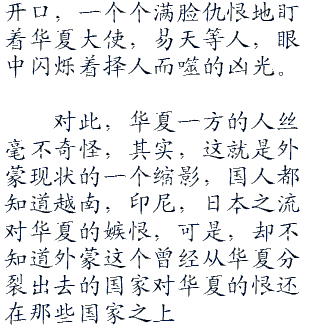 开口，一个个满脸仇恨地盯
着华夏大使，易天等人，眼
中闪烁着择人而噬的凶光。
对此，华夏一方的人丝
毫不奇怪，其实，这就是外
蒙现状的一个缩影，国人都
知道越南，印尼，日本之流
对华夏的嫉恨，可是，却不
知道外蒙这个曾经从华夏分
裂出去的国家对华夏的恨还
在那些国家之上